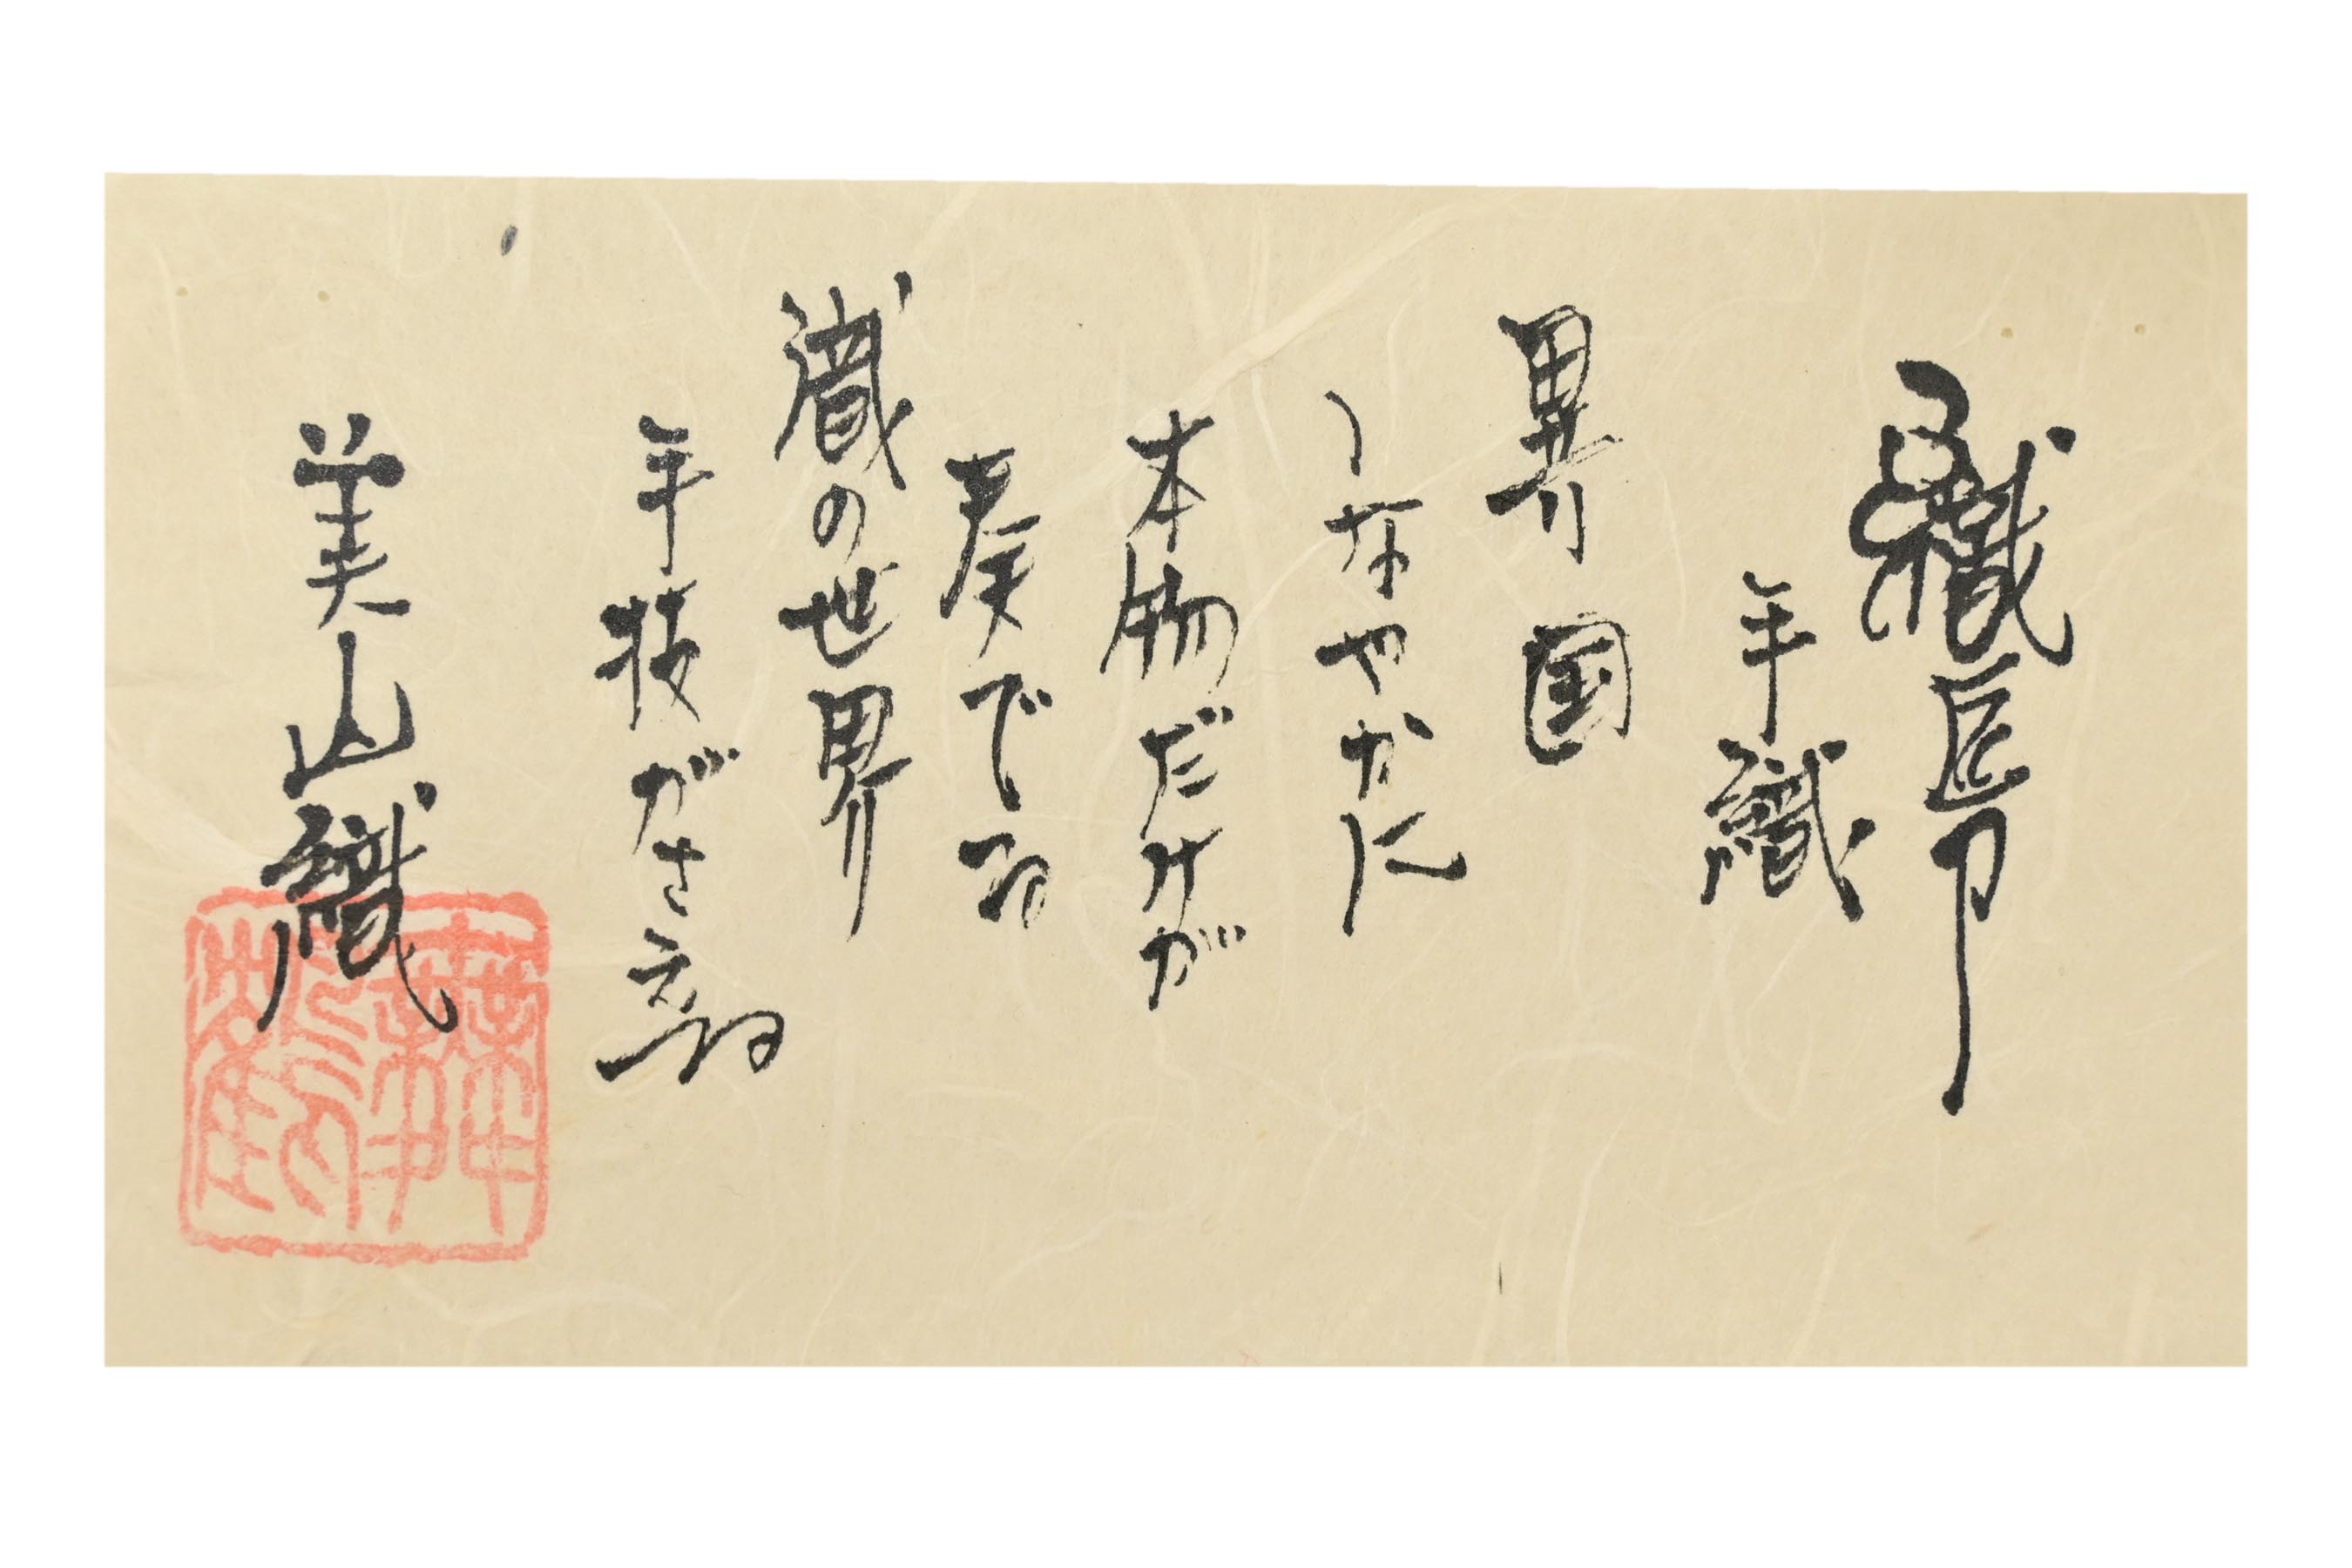 織匠
手織
異国
しなやかに
本物だけが
奏でる
織の世界
手技がさえ
美山織